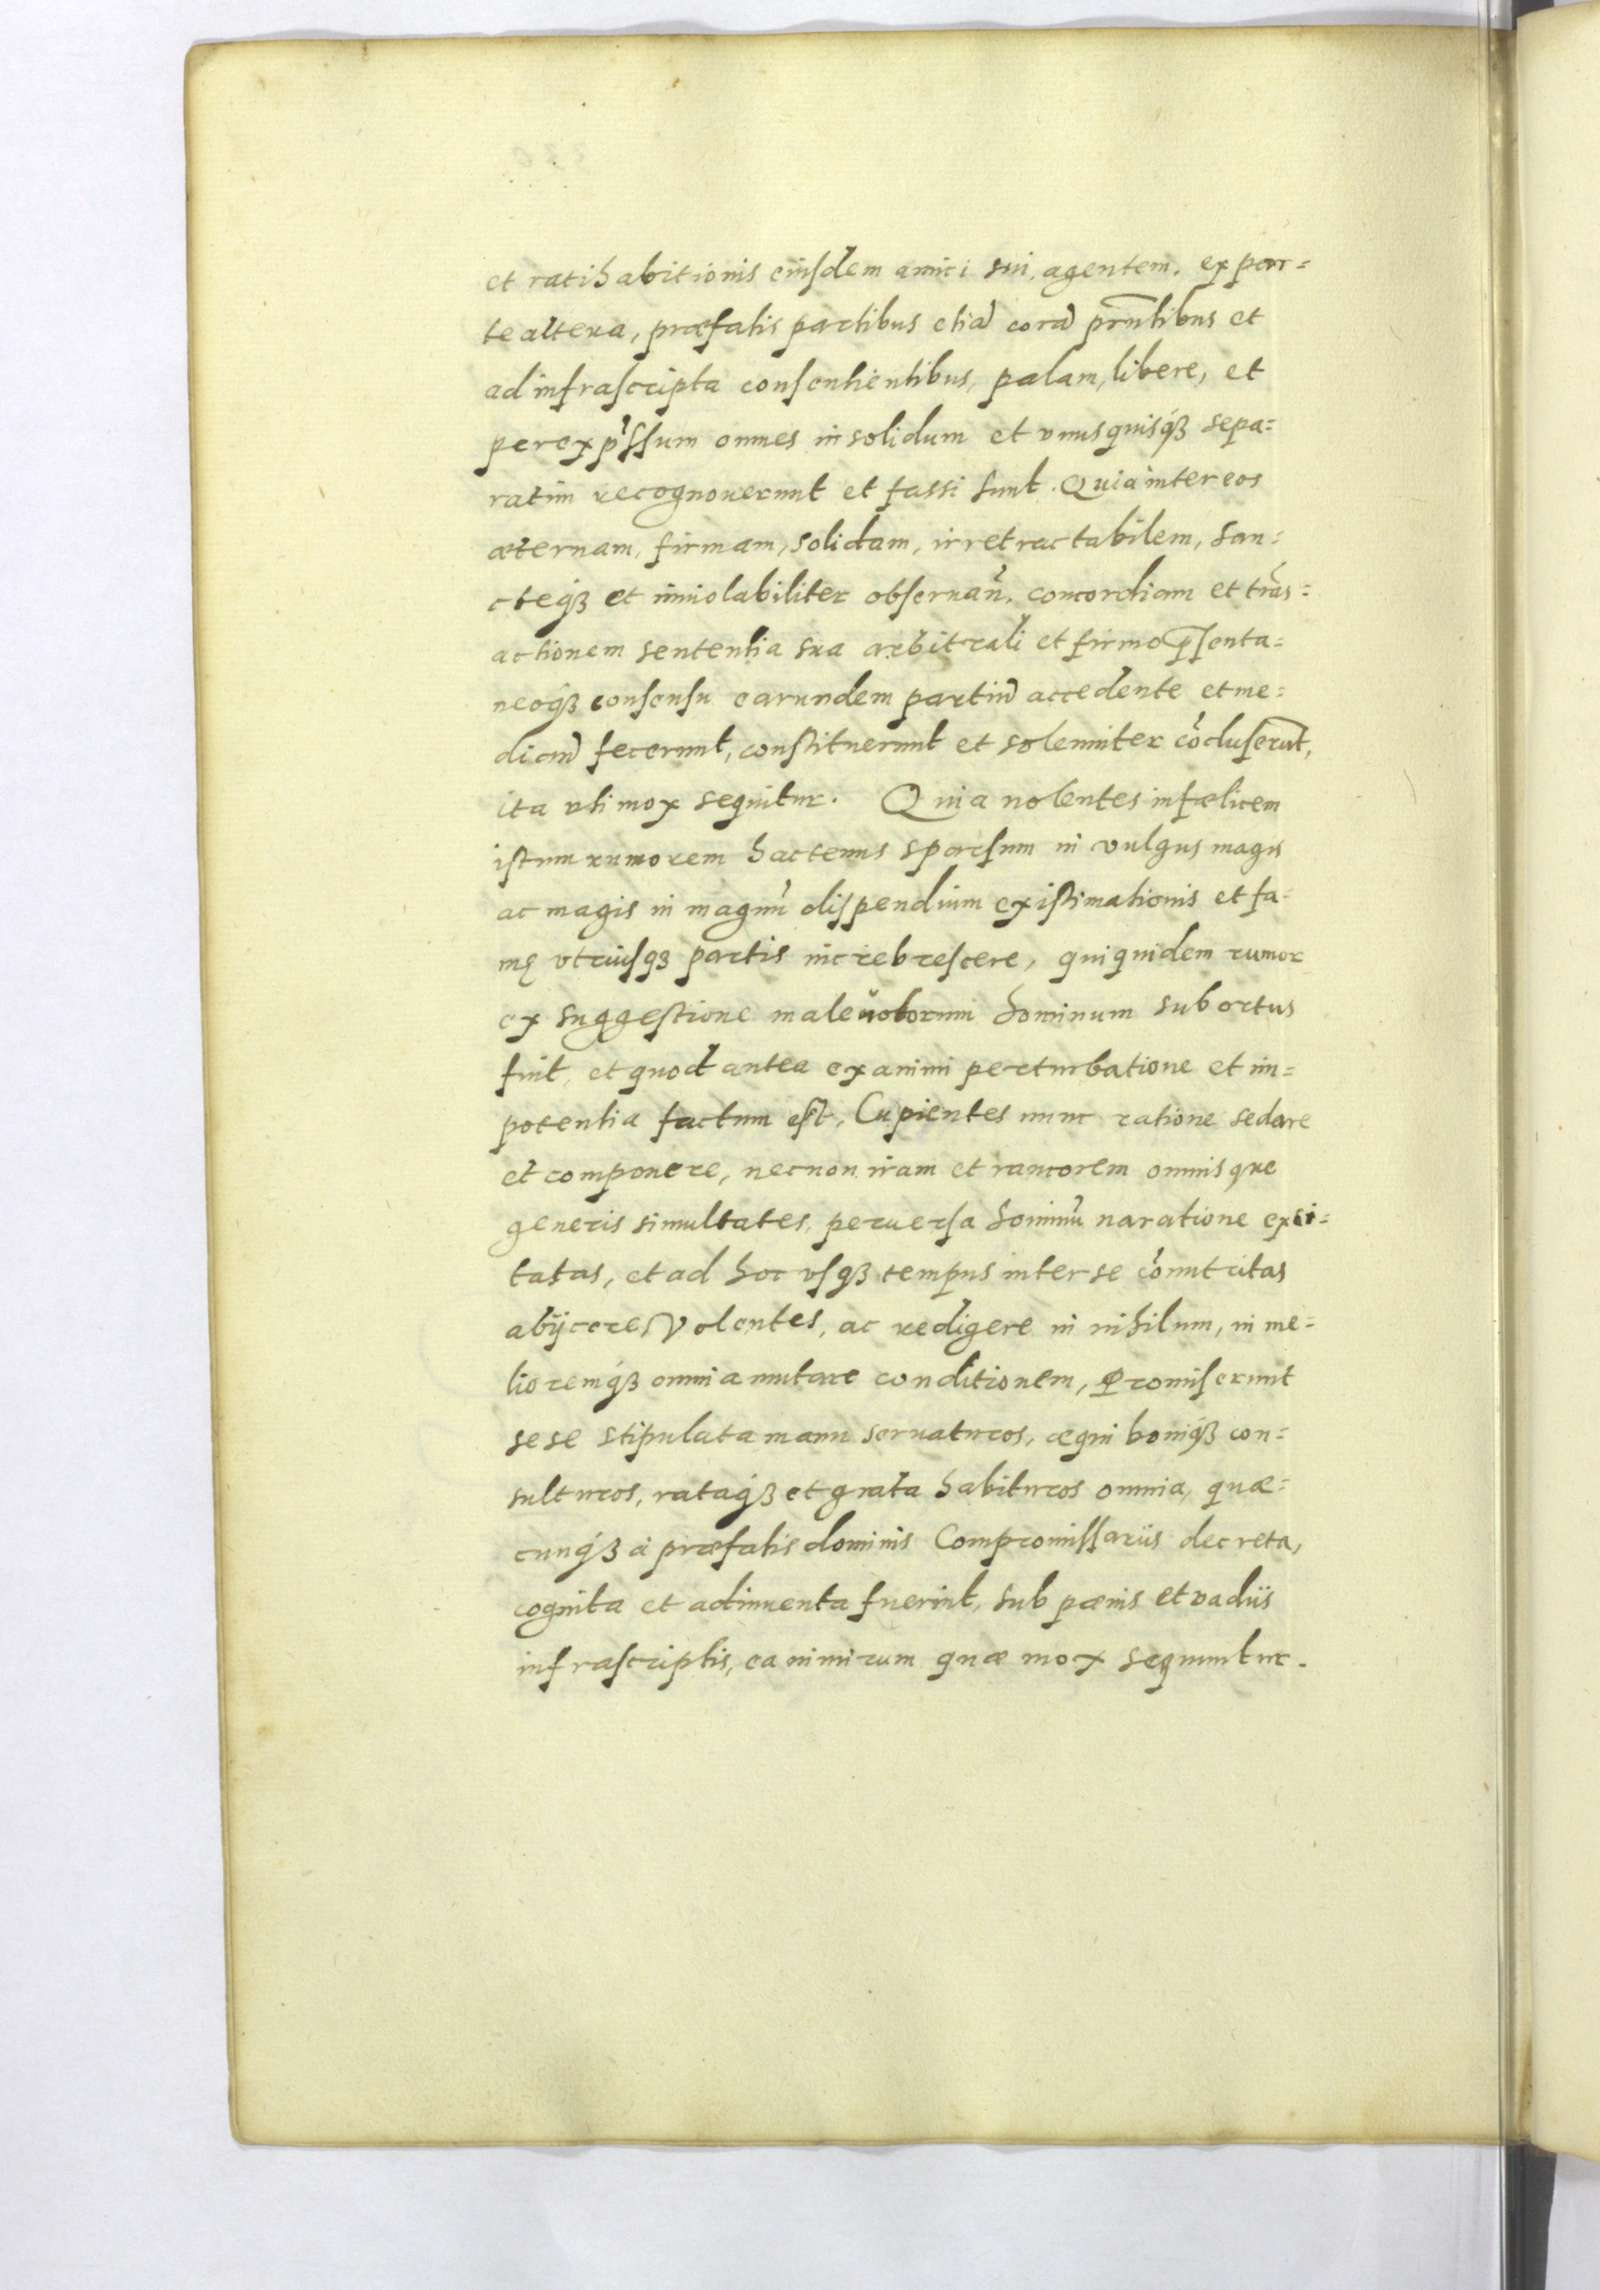 et ratihabitionis eiusdem amici sui, agentem. ex par=
te altera, præfatis partibus etiā corā pr̄ntibus et
ad infrascripta consentientibus, palam, libere, et
per exp̄ssum omnes in solidum et vnusquisq́ꝫ sepa=
ratim recognouerunt et fassi sunt. Quia inter eos
æternam, firmam, solidam, irretractabilem, san=
cteq́ꝫ et inuiolabiliter obseruan̄. concordiam et trās=
actionem sententia sua arbitrali et firmo p̄senta=
neoq́ꝫ consensu earundem partiū accedente et me=
diāū fecerunt, constituerunt et solenniter cōcluserūt,
ita vti mox sequitur. Quia nolentes infælicem
istum rumorem hactenus sparsum in vulgus magis
ac magis in magnū dispendium existimationis et fa=
mę vtriusqꝫ partis increbrescere, quiquidem rumor
ex suggestione maleuolorum hominum subortus
fuit, et quod antea ex animi perturbatione et im=
potentia factum est, Cupientes nunc ratione sedare
et componere, necnon iram et rancorem omnisque
generis simultates, peruersa hominū naratione exci=
tatas, et ad hoc vsqꝫ tempus inter se cōnutritas
abijcere volentes, ac redigere in nihilum, in me=
lioremq́ꝫ omnia mutare conditionem, Promiserunt
sese stipulata manu seruaturos, æqui boniq́ꝫ con=
sulturos, rataq́ꝫ et grata habituros omnia, quæ=
cunq́ꝫ à præfatis dominis Compromissariis decreta,
cognita et adinuenta fuerint, sub pænis et vadiis
infrascriptis, ea nimirum quæ mox sequuntur.